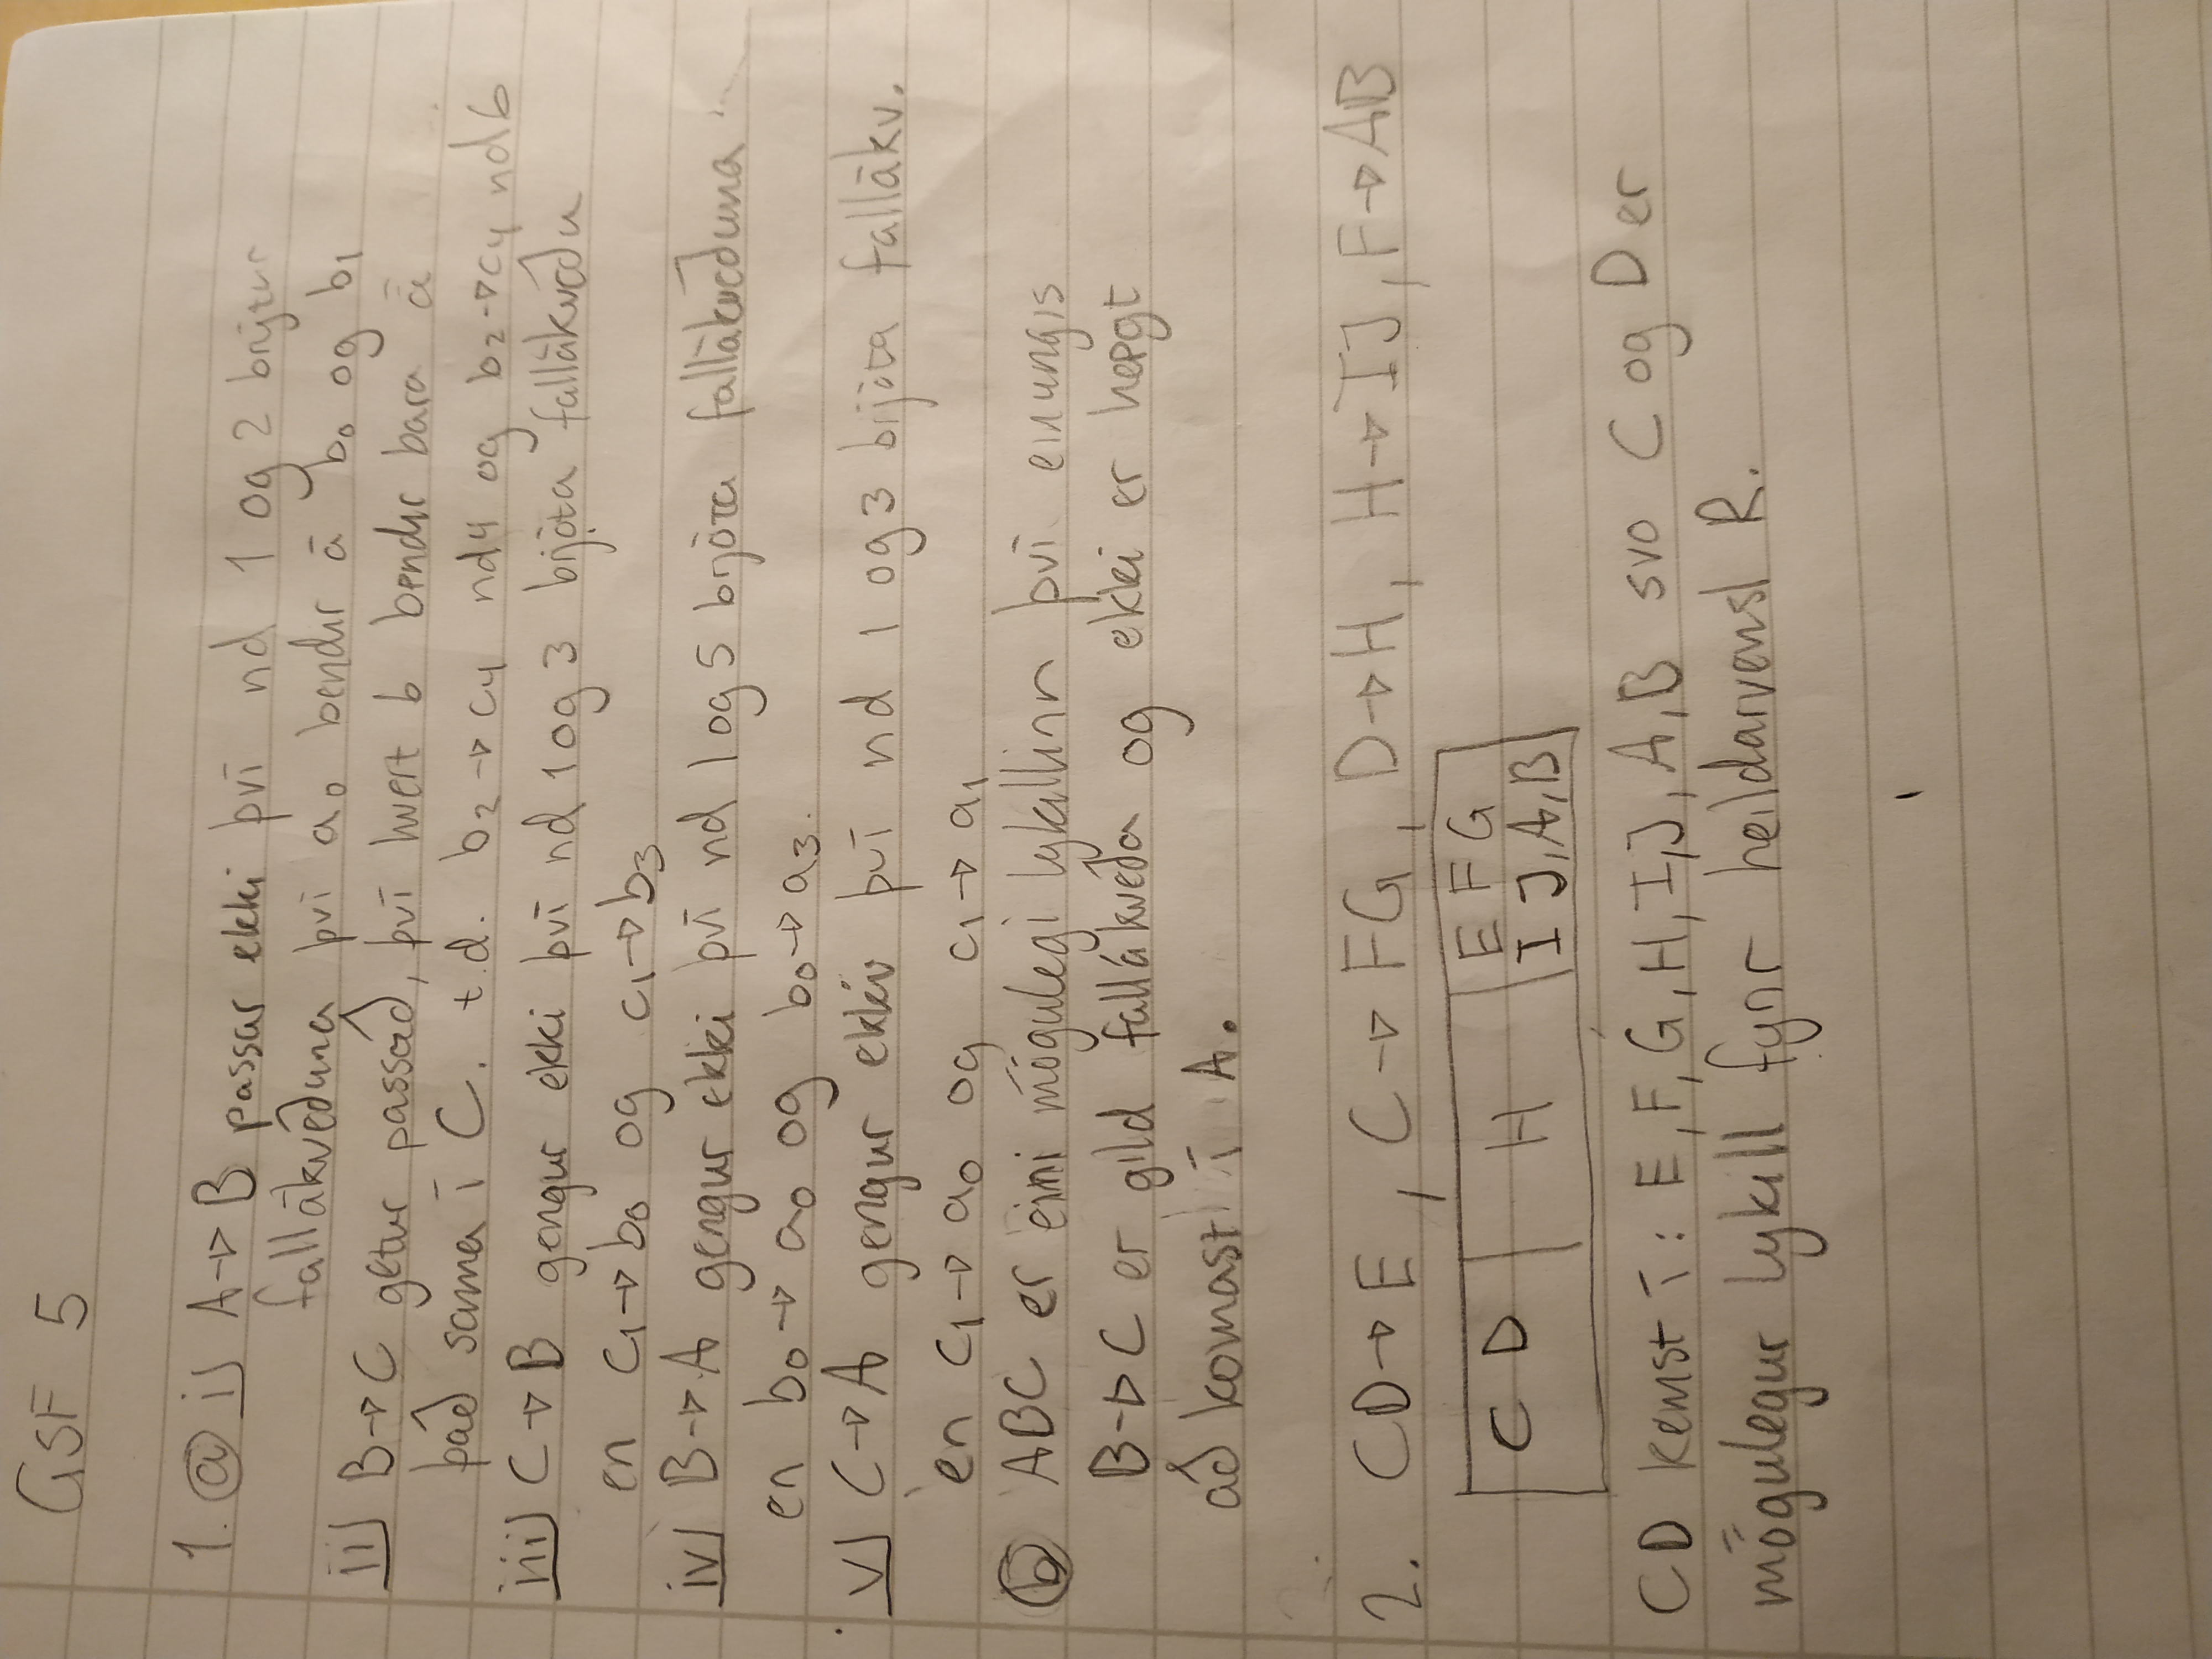 GSF 5
1. ⓐ i) A→B passar ekki því nd 1 og 2 brýtur
fallákveðuna því a₀ bendir á b₀ og b₁
ii) B→C getur passað, því hvert b bendir bara á
það sama í C. t.d. b₂→c₄ nd4 og b₂→c₄ nd6
iii) C→B gengur ekki því nd 1 og 3 brjóta fallákveðu
en c₁→b₀ og c₁→b₃
iv) B→A gengur ekki því nd 1 og 5 brjóta fallákveðuna
en b₀→a₀ og b₀→a₃.
v) C→A gengur ekki því nd 1 og 3 brjóta fallákv.
en c₁→a₀ og c₁→a₁
ⓑ ABC er eini mögulegi lykillinn því einungis
B→C er gild fallákveða og ekki er hægt
að komast í A.
2. CD→E, C→FG, D→H, H→IJ, F→AB
C D H E F G
I J, A, B
CD kemst í: E, F, G, H, I, J, A, B svo C og D er
mögulegur lykill fyrir heildarvensl R.